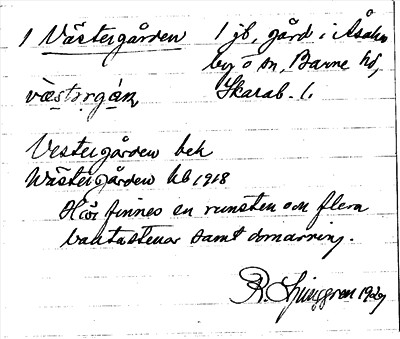 1 Västergården 1 jb, gård i Åsaka
by o sn, Barne hd,
væstərgán, Skarab. l.
Vestergården bek
Wästergården hb 1918
Här finnes en runsten och flera
bautastenar samt domarring.
R. Ljunggren 1929